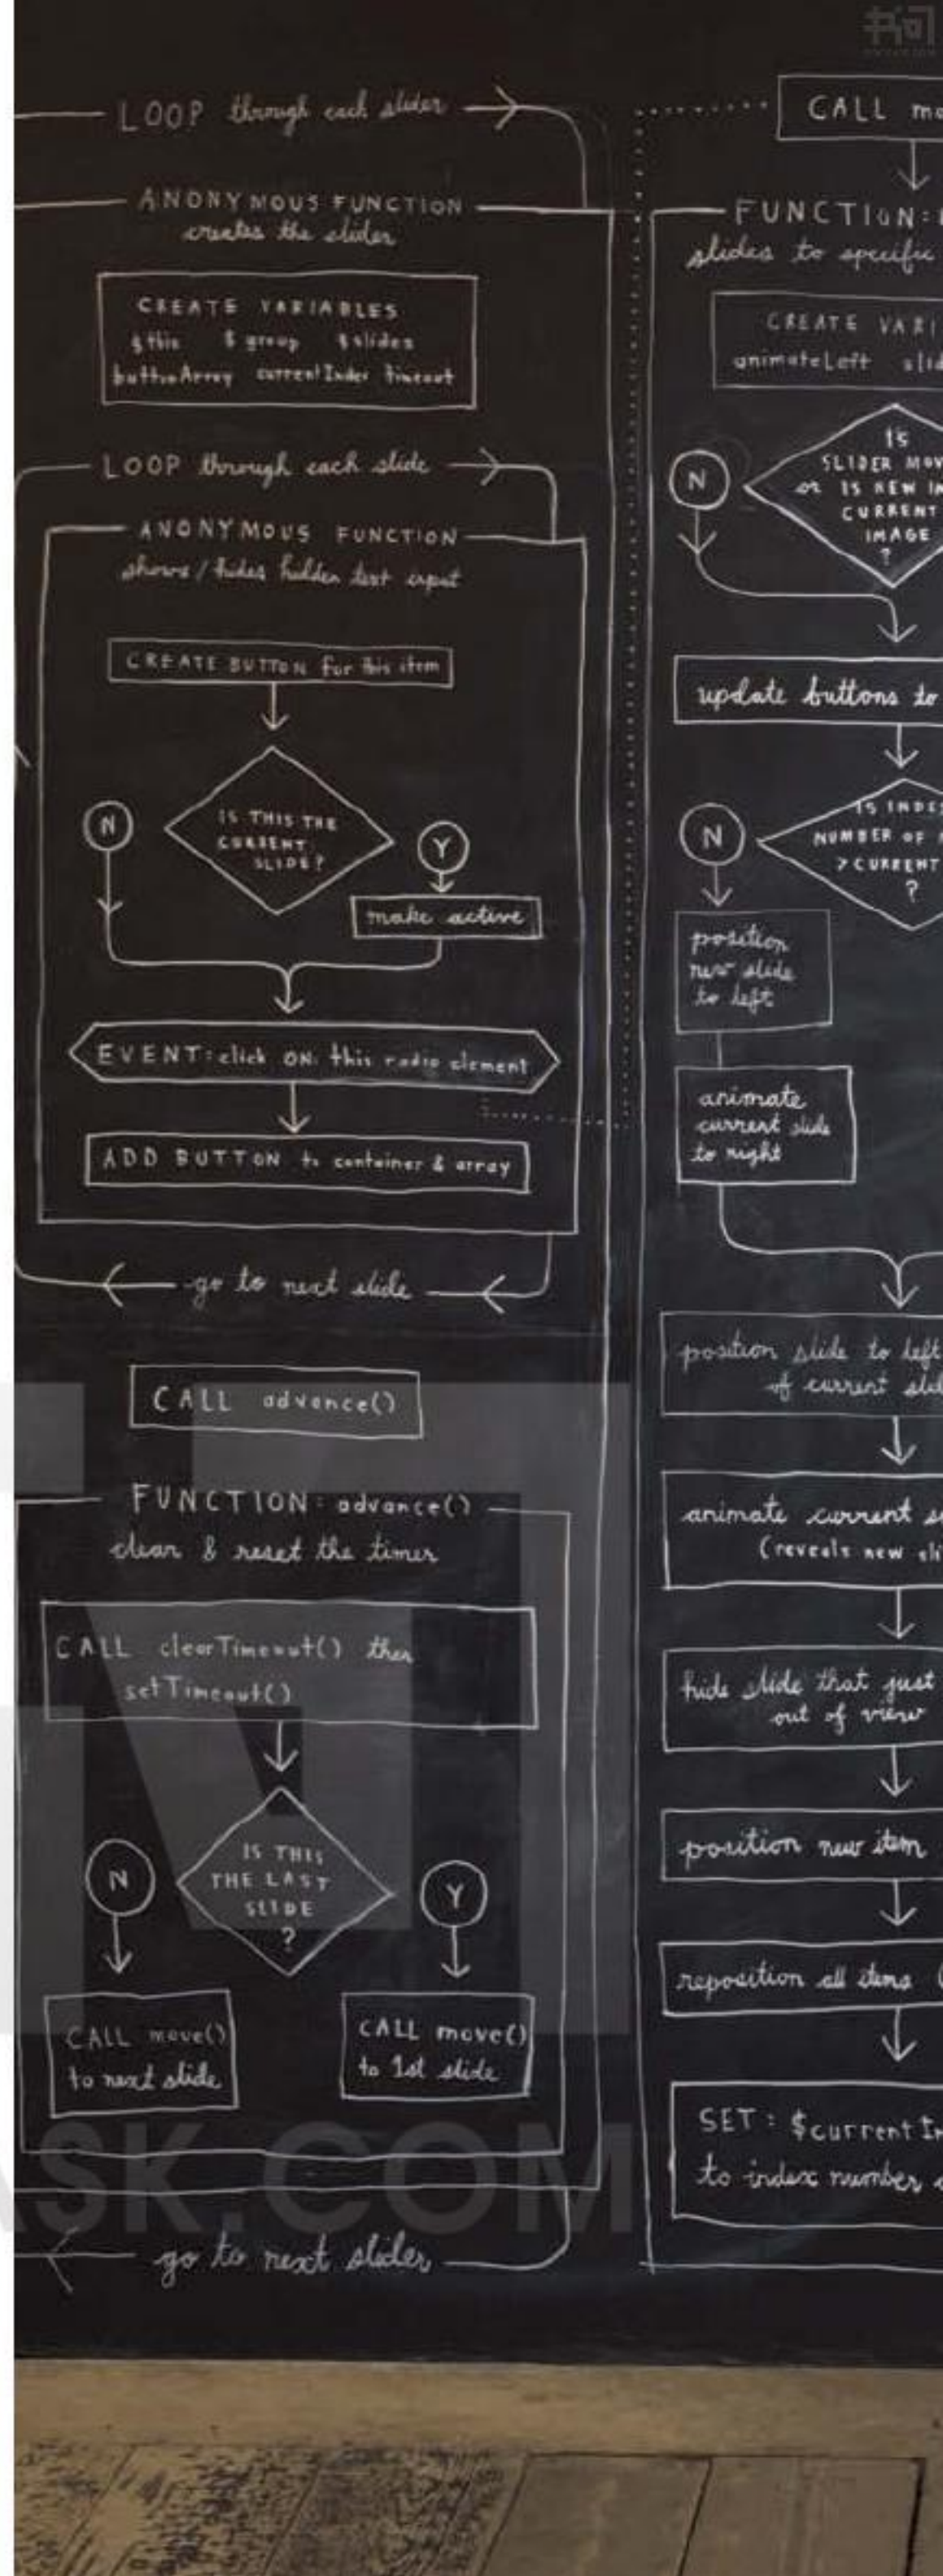 LOOP through each slider
ANONYMOUS FUNCTION
creates the slider
CREATE VARIABLES
$this $group $slides
buttonArray currentIndex timeout
LOOP through each slide
ANONYMOUS FUNCTION
shows/hides hidden text input
CREATE BUTTON for this item
N
IS THIS THE
CURRENT
SLIDE?
Y
make active
EVENT: click ON: this radio element
ADD BUTTON to container & array
go to next slide
CALL advance()
FUNCTION: advance()
clear & reset the timer
CALL clearTimeout() then
setTimeout()
N
IS THIS
THE LAST
SLIDE
?
Y
CALL move()
to next slide
CALL move()
to 1st slide
go to next slider
书问
CALL mo
FUNCTION:
slides to specific
CREATE VARI
animateLeft slid
N
IS
SLIDER MOV
or IS NEW IM
CURRENT
IMAGE
?
update buttons to
N
IS INDEX
NUMBER OF
>CURRENT
?
position
new slide
to left
animate
current slide
to right
position slide to left
of current slid
animate current s
(reveals new sli
hide slide that just
out of view
position new item
reposition all items (
SET: $currentIn
to index number
ASK.COM